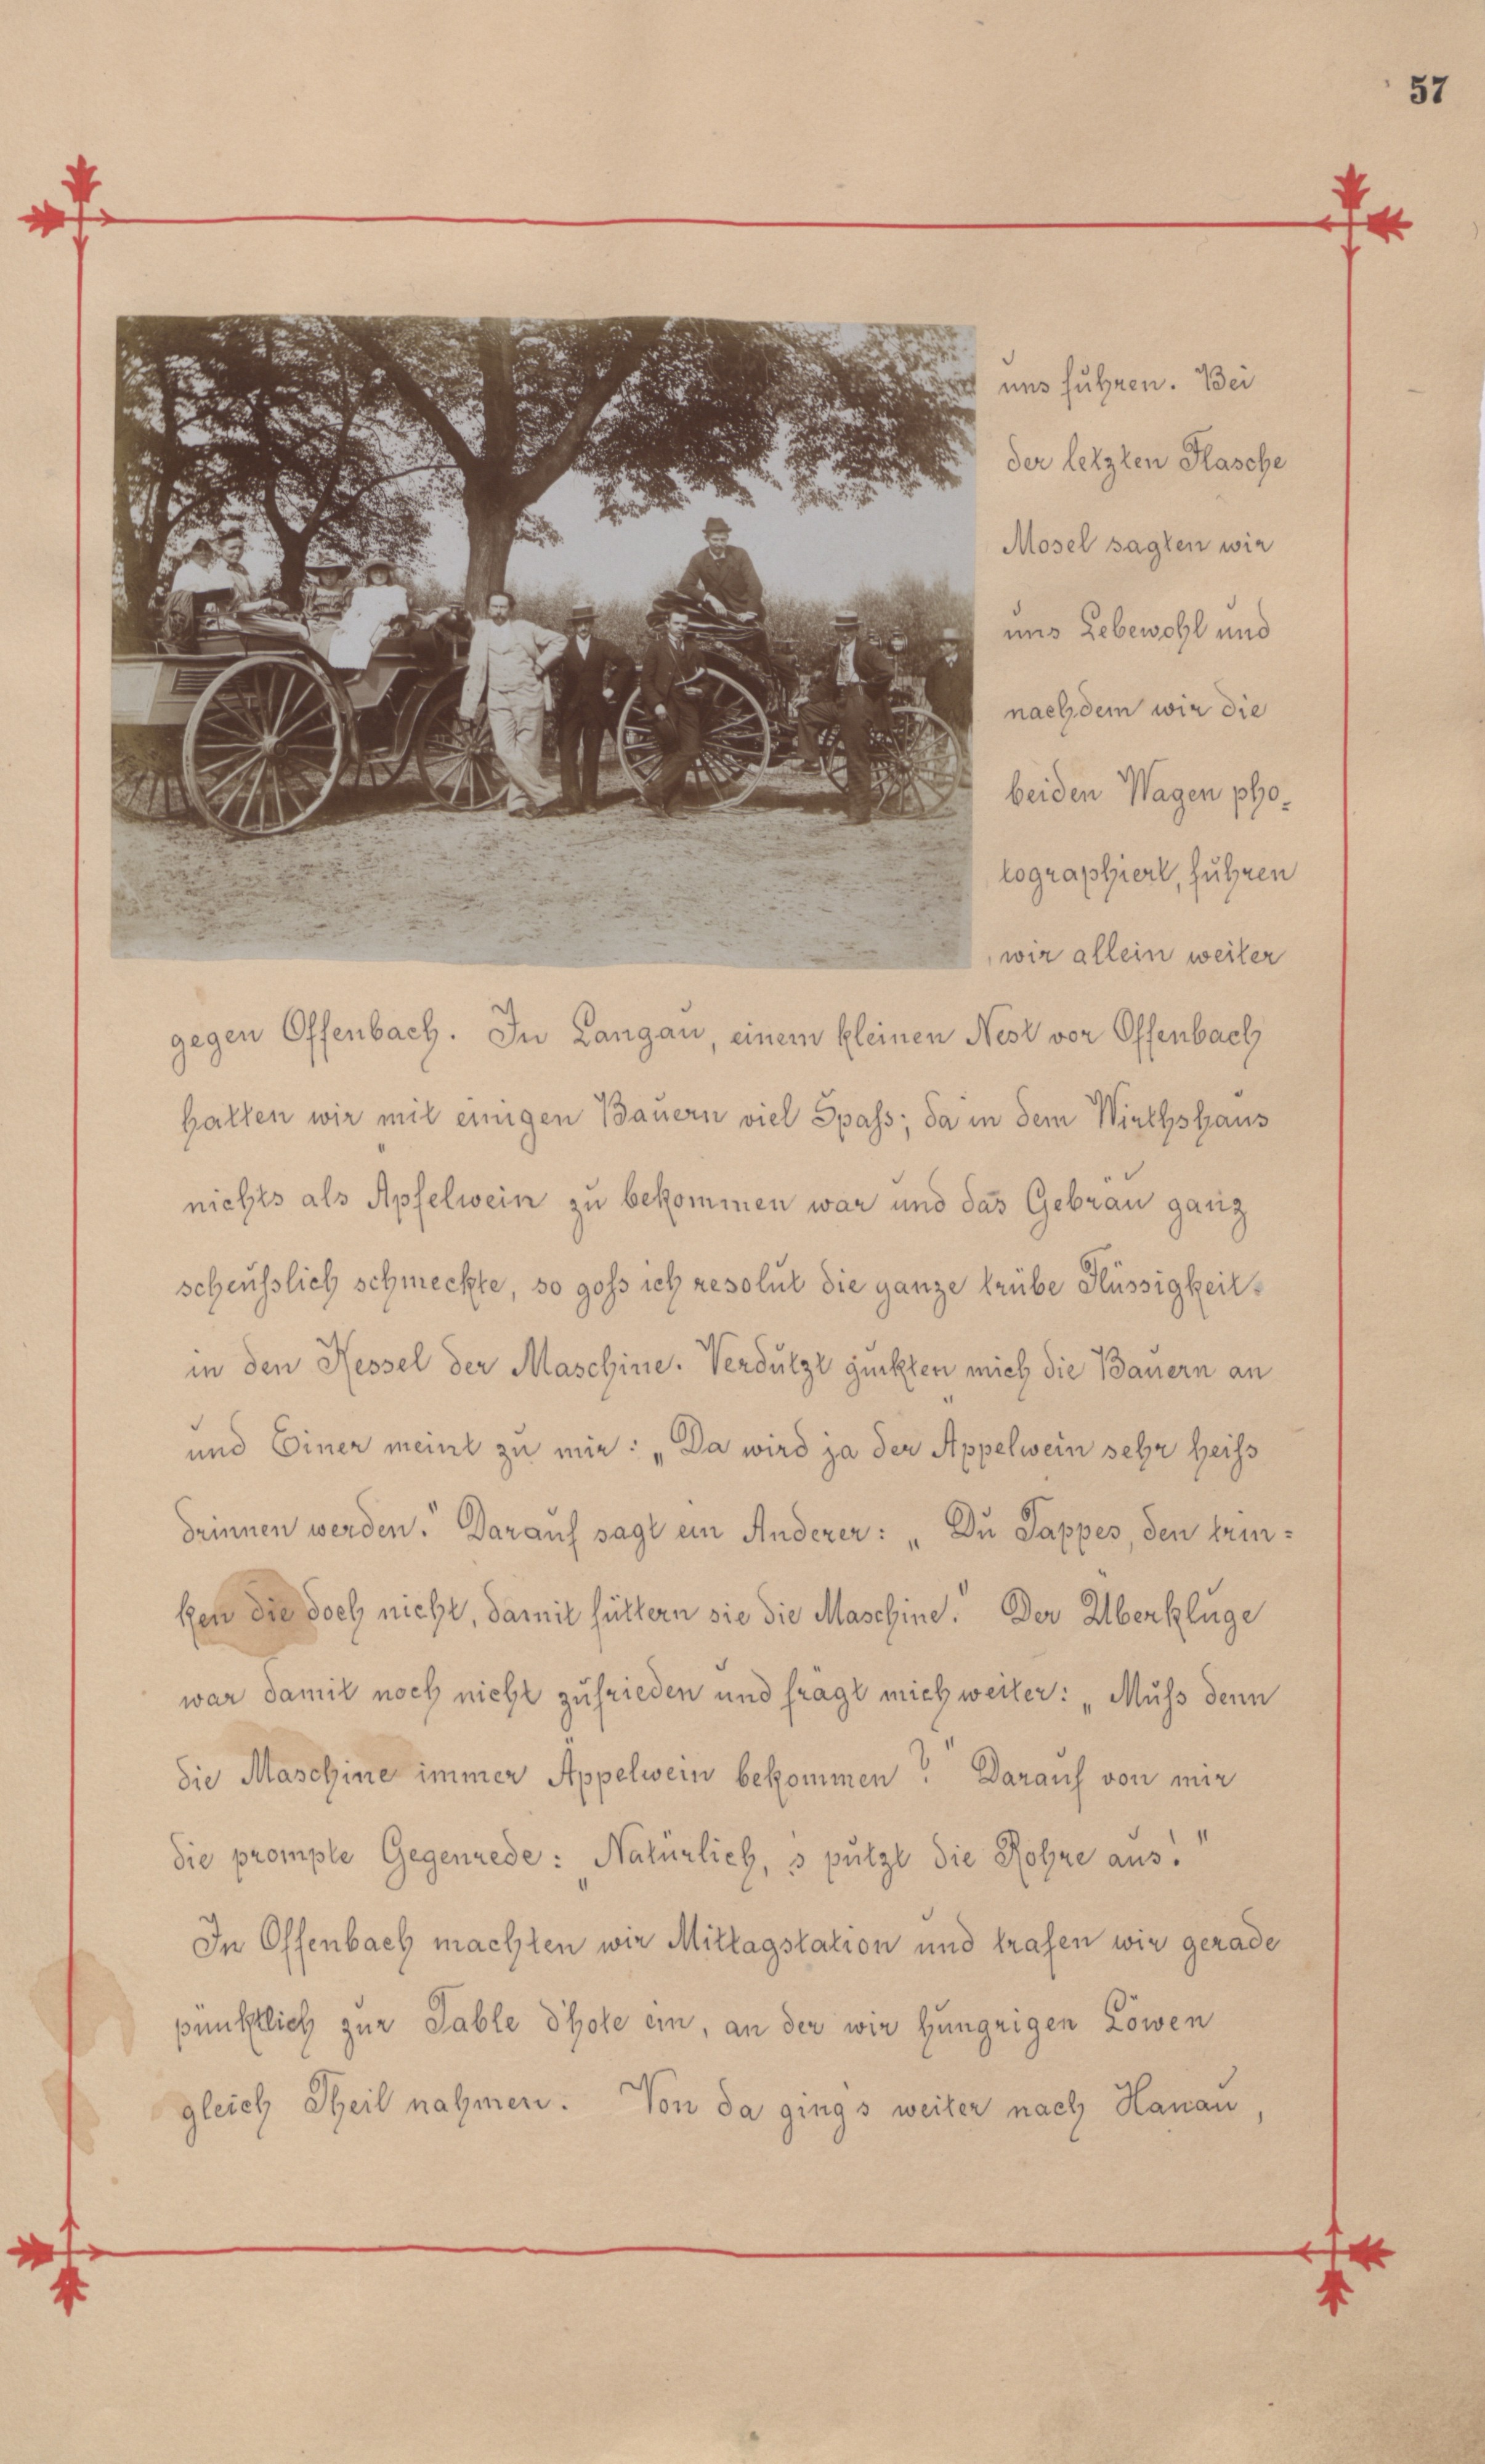 57
uns fuhren. Bei
der letzten Flasche
Mosel sagten wir
uns Lebewohl und
nachdem wir die
beiden Wagen pho-
tographiert, fuhren
wir allein weiter
gegen Offenbach. In Langau, einem kleinen Nest vor Offenbach
hatten wir mit einigen Bauern viel Spass; da in dem Wirthshaus
nichts als Äpfelwein zu bekommen war und das Gebräu ganz
scheusslich schmeckte, so goss ich resolut die ganze trübe Flüssigkeit
in den Kessel der Maschine. Verdutzt guckten mich die Bauern an
und Einer meint zu mir: „Da wird ja der Äppelwein sehr heiss
drinnen werden." Darauf sagt ein Anderer: „Du Tappes, den trin-
ken die doch nicht, damit füttern sie die Maschine." Der Überkluge
war damit noch nicht zufrieden und frägt mich weiter: „Muss denn
die Maschine immer Äppelwein bekommen?" Darauf von mir
die prompte Gegenrede: „Natürlich, 's putzt die Rohre aus!"
In Offenbach machten wir Mittagstation und trafen wir gerade
pünktlich zur Table d'hote ein, an der wir hungrigen Löwen
gleich Theil nahmen. Von da ging's weiter nach Hanau,